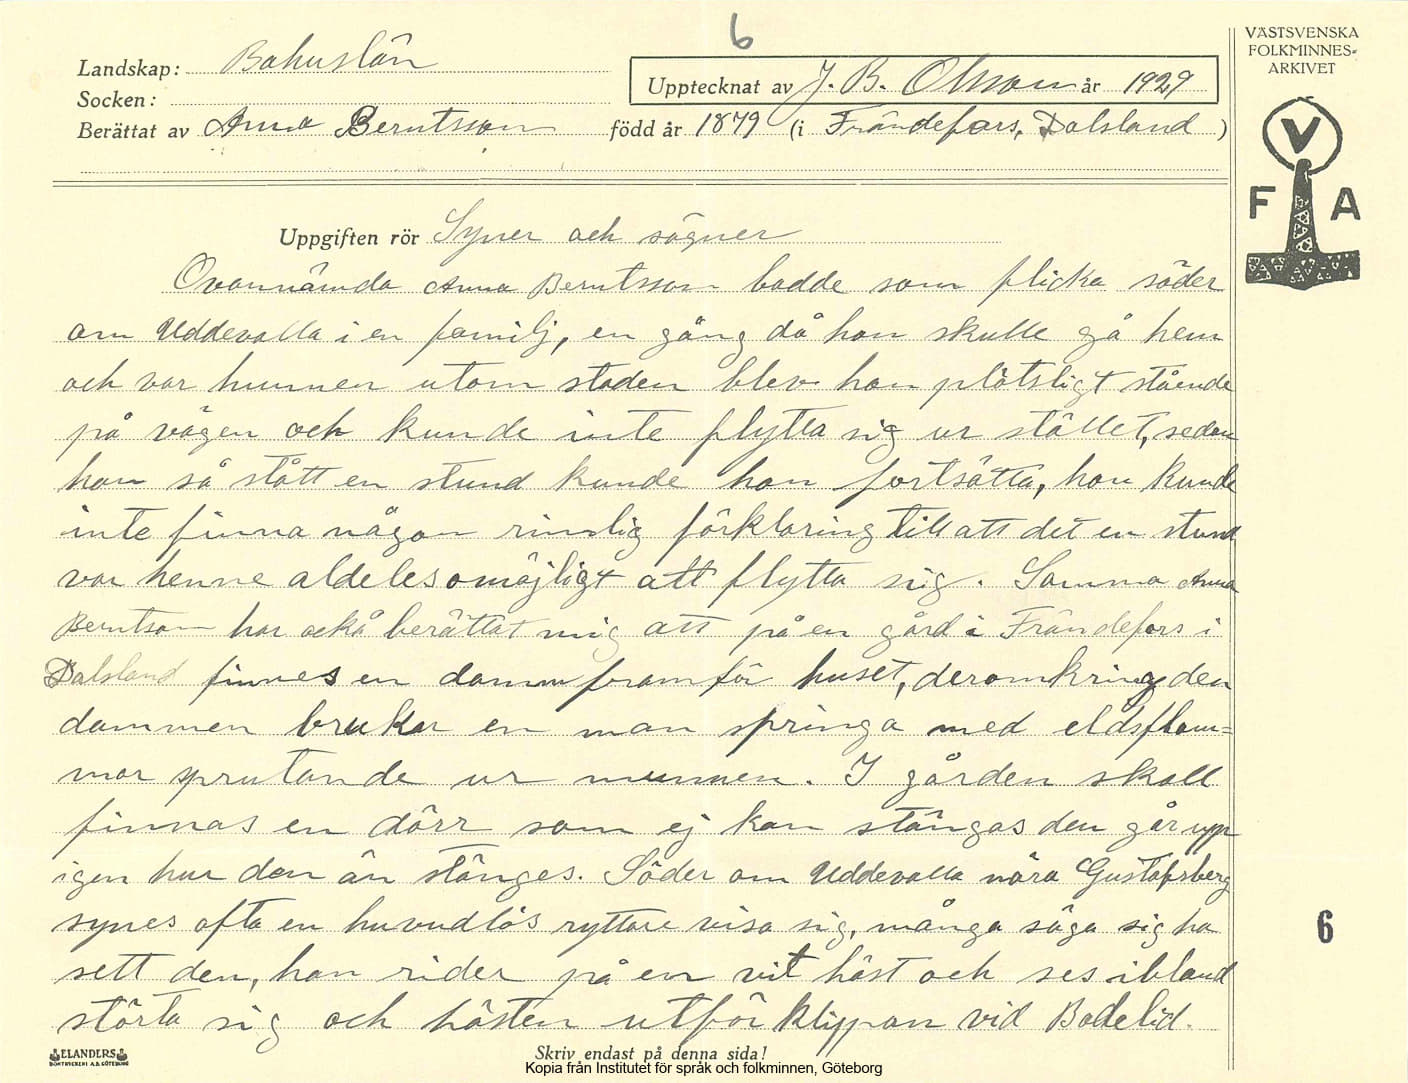 6
VÄSTSVENSKA
FOLKMINNES-
ARKIVET
Landskap: Bohuslän
Socken:
Upptecknat av J. B. Olsson år 1929
Berättat av Anna Berntsson född år 1879 (i Frändefors, Dalsland )
V
F A
Uppgiften rör Syner och sägner
Ovannämda Anna Berntsson bodde som flicka söder
om Uddevalla i en familj, en gång då hon skulle gå hem
och var hunnen utom staden blev hon plötsligt stående
på vägen och kunde inte flytta sig ur stället, sedan
hon så stått en stund kunde hon fortsätta, hon kunde
inte finna någon rimlig förklaring till att det en stund
var henne aldeles omöjligt att flytta sig. Samma Anna
Berntson har ockå berättat mig att på en gård i Frändefors i
Dalsland finnes en damm framför huset, deromkring den
dammen brukar en man springa med eldsflam=
mor sprutande ur munnen. I gården skall
finnas en dörr som ej kan stängas den går upp
igen hur den än stänges. Söder om Uddevalla nära Gustafsberg
synes ofta en huvudlös ryttare visa sig, många säga sig ha
sett den, han rider på en vit häst och ses ibland
störta sig och hästen utför klippan vid Bodelid.
6
ELANDERS
BOKTRYCKERI A.B. GÖTEBORG
Skriv endast på denna sida!
Kopia från Institutet för språk och folkminnen, Göteborg